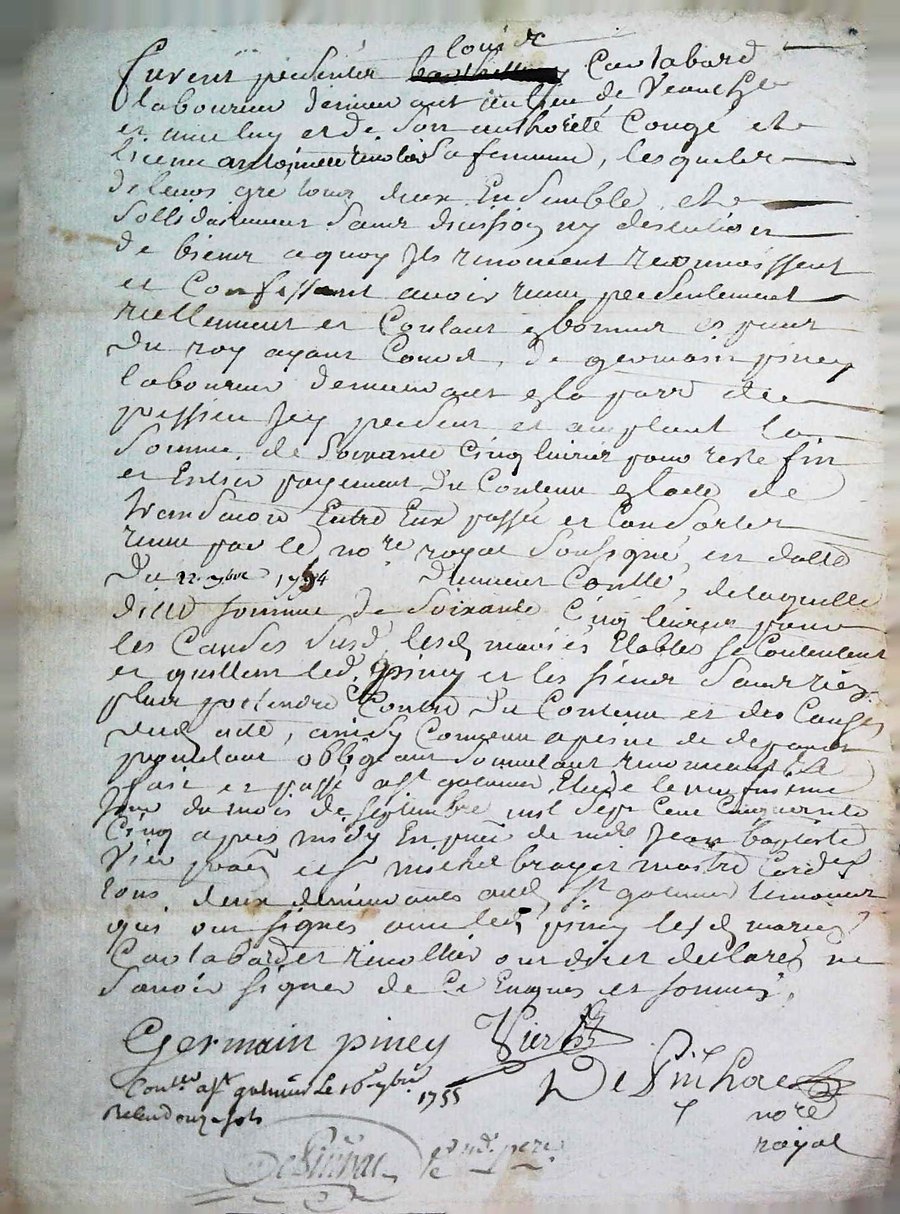 louis
furent présentés Cantabard
laboureur demeurant au lieu de Veauche
et avec luy et de son authorité Congé et
licence antoinette sa femme, lesquels
de leurs gré tous deux Ensemble et
sollidairement sans discussion ny division
de biens a quoy ils renoncent reconnoissent
et Confessent avoir reçu presentement
reellement et Contant en bonnes espèces
Du roy ayant Cours, de germain piney
laboureur demeurant en la parr de
present et acceptant la
Somme de Soixante Cinq livres pour reste fin
et Entier payement Du Contenu en lacte de
transaction Entre Eux passé et Consorts
reçu par le no.re royal Soussigné, en datte
Du 22. 9bre 1754 Contlle, de laquelle
ditte somme de Soixante Cinq livres pour
les Causes Susd. lesd. mariés Etables se Contentent
et quittent led. piney et les siens Sans rien
plus pretendre Contre Du Contenu et des Causes
dud. acte, ainsy Convenu a peine de depens
obligeant Soumettant renonceant &
fait et passé a st galmier Etude le neufvième
Jour du mois de septembre mil Sept Cent Cinquante
Cinq après midy En pnce de me Jean baptiste
Vier et sr michel brayer maitre Cord
tous deux demeurants aud. st galmier temoins
qui ont signés avec led. piney lesd. mariés
Cantabard et ont dit et declarés ne
Savoir signer de Ce Enquis et sommés.
Germain piney Vier
DePinhac
nore
royal
Contlle a st galmier le 16 7bre 1755
Reçu douze sols
DePinhac